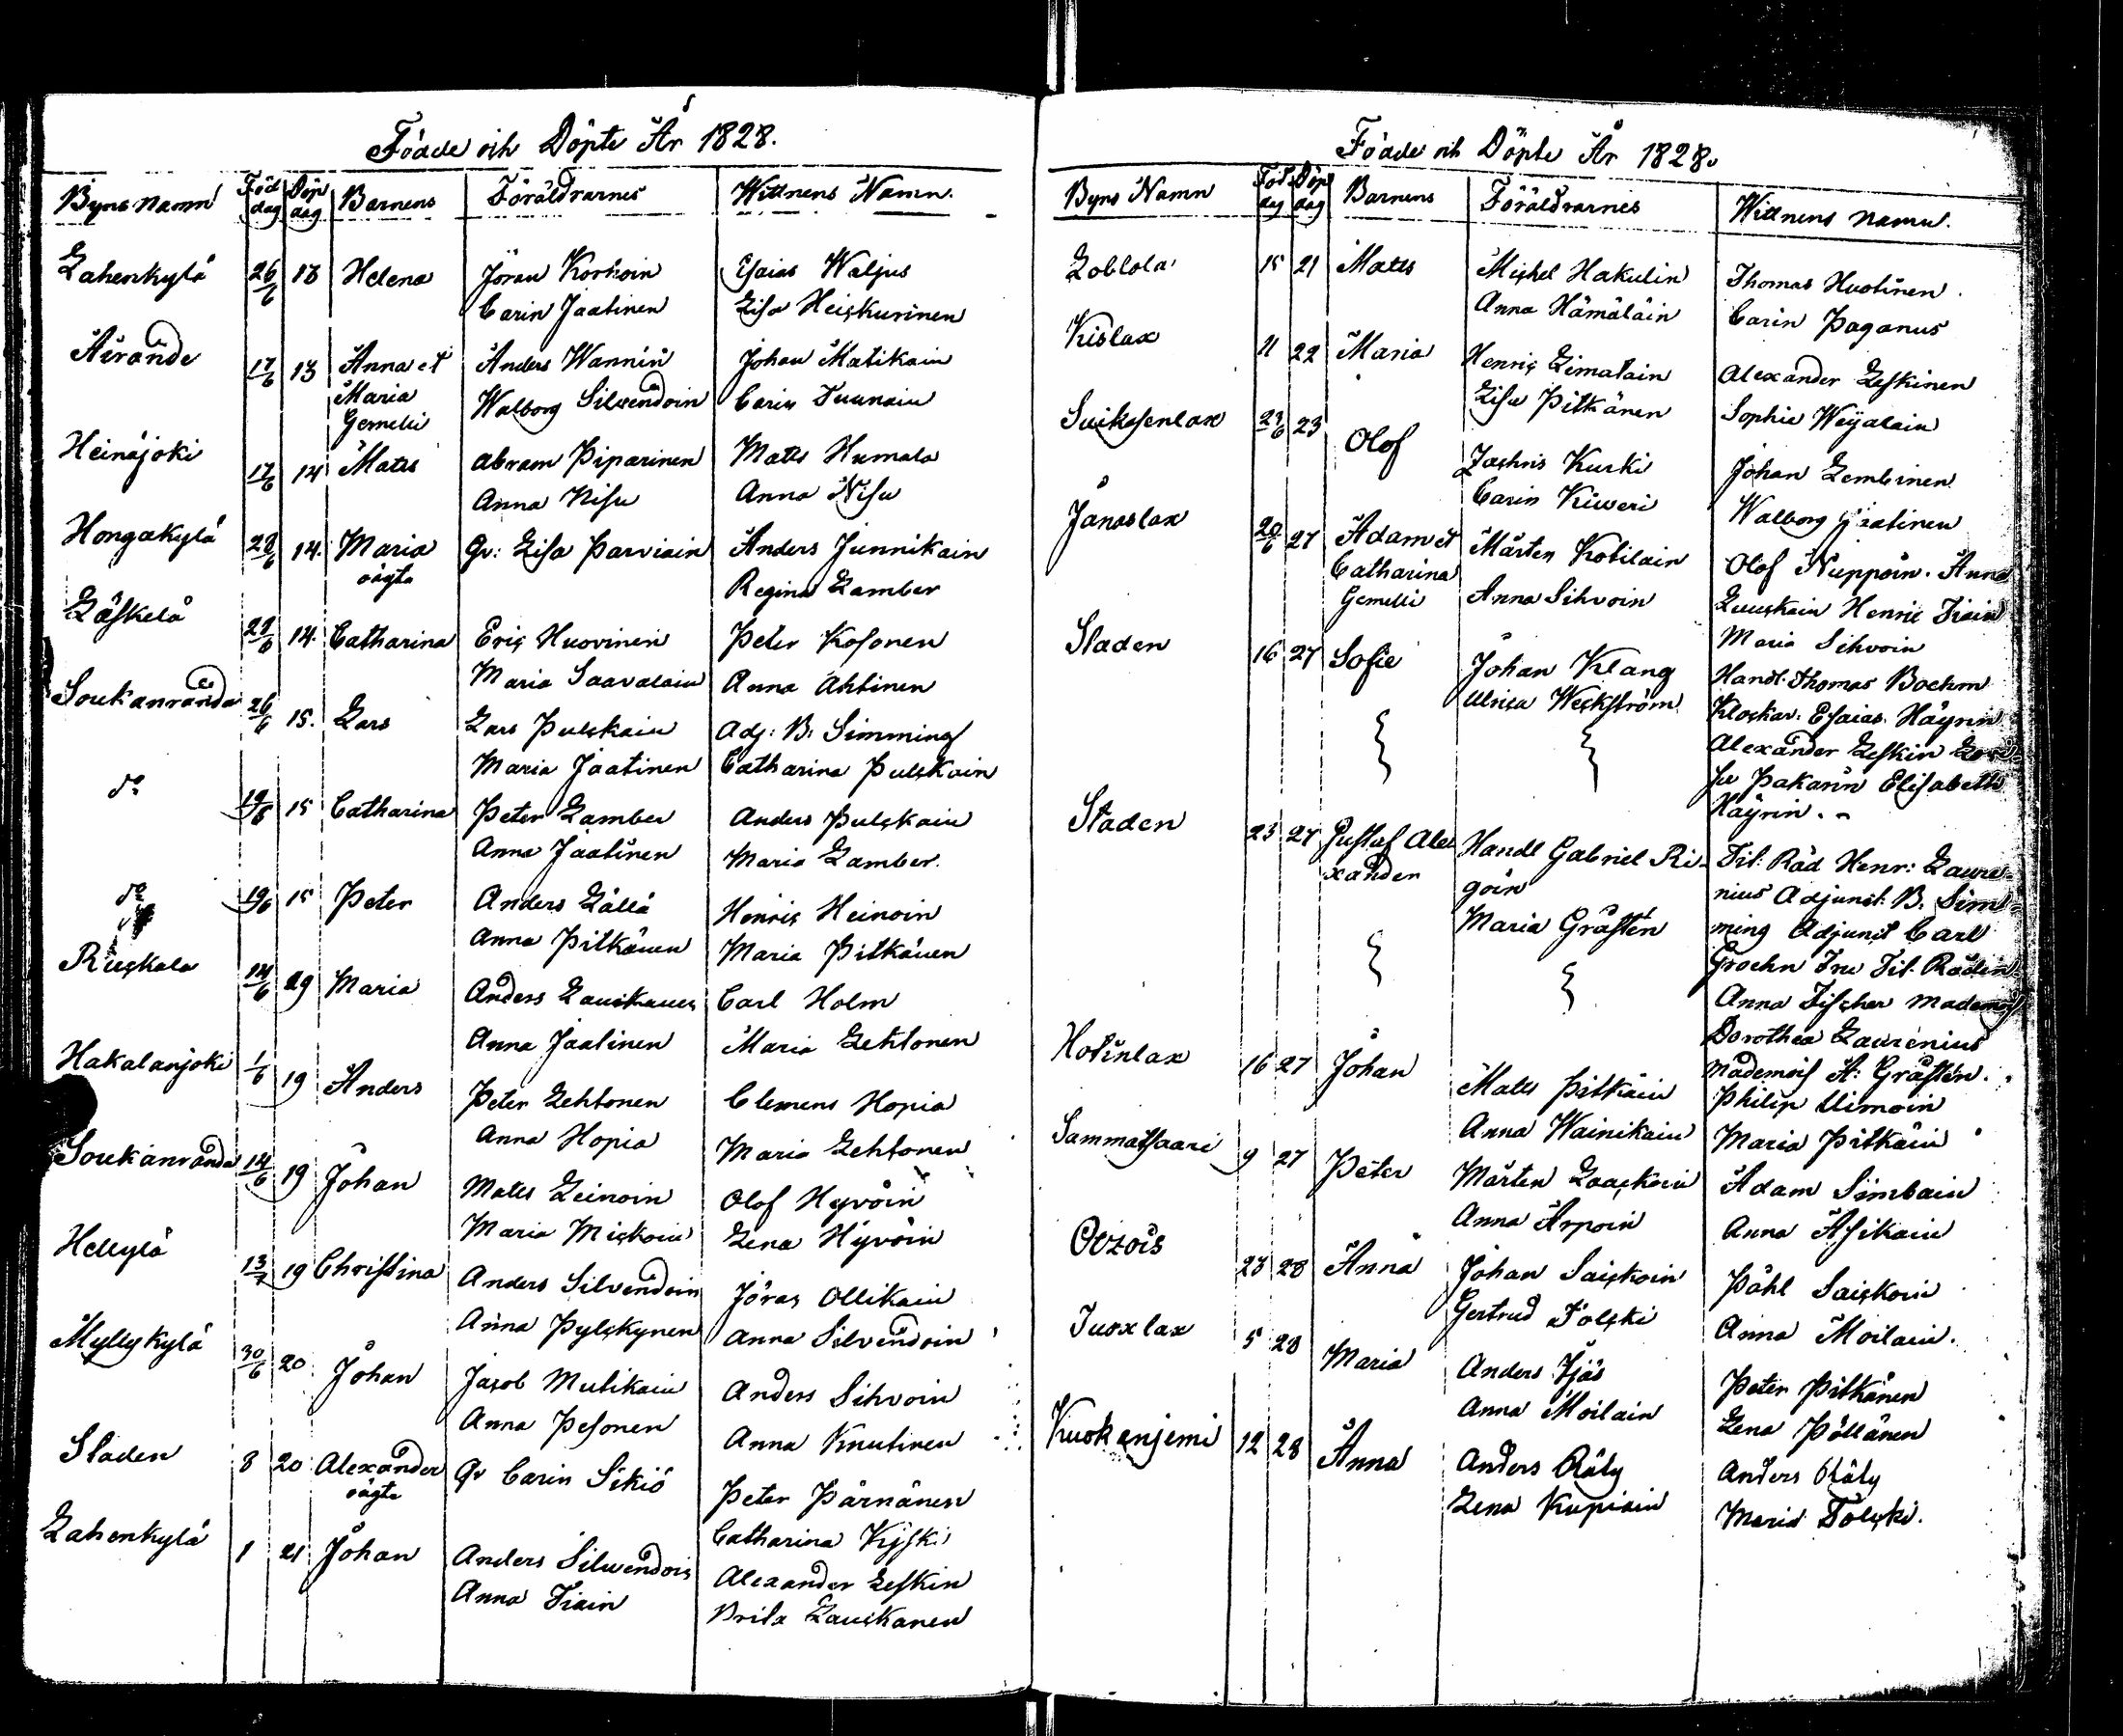 Födde och Döpte År 1828.
Byns namn Föd dag Döp dag Barnens Föräldrarnes Wittnens Namn.
Lahenkylä 26/6 13 Helena Jöran Korhoin Esaias Waljus
Carin Jaatinen Lisa Heiskurinen
Äïrände 17/6 13 Anna et Anders Wannin Johan Matikain
Maria Walborg Silvendoin Carin Tuunain
Gemelli
Heinäjoki 17/6 14 Matts Abram Piparinen Matts Humala
Anna Nisu Anna Nisu
Hongakylä 28/6 14. Maria Qv: Lisa Parviain Anders Junnikain
oägta Regina Lamber
Läskelä 28/6 14. Catharina Eric Huovinen Peter Kosonen
Maria Saavalain Anna Ahtinen
Soukanranda 26/6 15. Lars Lars Pulckain Adj: B: Simming
Maria Jaatinen Catharina Pulckain
do 19/6 15 Catharina Peter Lamber Anders Pulckain
Anna Jaatinen Maria Lamber.
do 19/6 15 Peter Anders Lällä Henric Heinoin
Anna Pitkänen Maria Pitkänen
Ruckala 14/6 19 Maria Anders Lauckanen Carl Holm
Anna Jaatinen Maria Lehtonen
Hakalanjoki 1/6 19 Anders Peter Lehtonen Clemens Hopia
Anna Hopia Maria Lehtonen
Soukanranda 14/6 19 Johan Matts Leinoin Olof Hyvöin
Maria Mickoin Lena Hyvöin
Hellylä 13/7 19 Christina Anders Silvendoin Jöran Ollikain
Anna Pylckynen Anna Silvendoin
Myllykylä 30/6 20 Johan Jacob Mutikain Anders Sihvoin
Anna Pesonen Anna Knutinen
Staden 8 20 Alexander Qv Carin Sikiö Peter Pärnänen
oägta Catharina Kyski
Lahenkylä 1 21 Johan Anders Silwendoin Alexander Leskin
Anna Tiain Brita Lauckanen
Födde och Döpte År 1828.
Byns Namn Föd dag Döp dag Barnens Föräldrarnes Wittnens namn.
Loblola 15 21 Matts Michel Hakulin Thomas Huotinen
Anna Hämäläin Carin Paganus
Kislax 11 22 Maria Henric Limatain Alexander Leskinen
Lisa Pitkänen Sophie Weijalain
Suiksenlax 23/6 23 Olof Zachris Kurki Johan Lembinen
Carin Kiweri Walborg Jaatinen
Janaslax 20/6 27 Adam et Mårten Kotilain Olof Nuppoin. Anna
Catharina Anna Sihvoin Luuckain Henric Tiain
Gemelli Maria Sihvoin
Staden 16 27 Sofie Johan Klang Handl. Thomas Boehm
Ulrica Weckström Klockar. Esaias Häyrin
Alexander Leskin
Pakarin Elisabeth
Häyrin.
Staden 23 27 Gustaf Ale- Handl Gabriel Ri- Tit: Råd Henr: Laure-
xander göin nius Adjunct: B. Sim-
Maria Gråsten ming Adjunct Carl
Groehn Fru Tit. Rådin
Anna Fischer Mademois
Dorothea Laurenius
Mademois A: Gråstén.
Hotinlax 16 27 Johan Matts Pitkäin Philip Uimoin
Anna Wainikain Maria Pitkäin
Sammatsaari 9 27 Peter Mårten Laackoin Adam Simbain
Anna Arpoin Anna Asikain
Orzois 23 28 Anna Johan Saickoin Påhl Saickoin
Gertrud Tolcki Anna Moilain.
Tuoxlax 5 28 Maria Anders Ijäs Peter Pitkänen
Anna Moilain Lena Pöllänen
Kuokanjemi 12 28 Anna Anders Räty Anders Räty
Lena Kupiain Maria Tolcki.